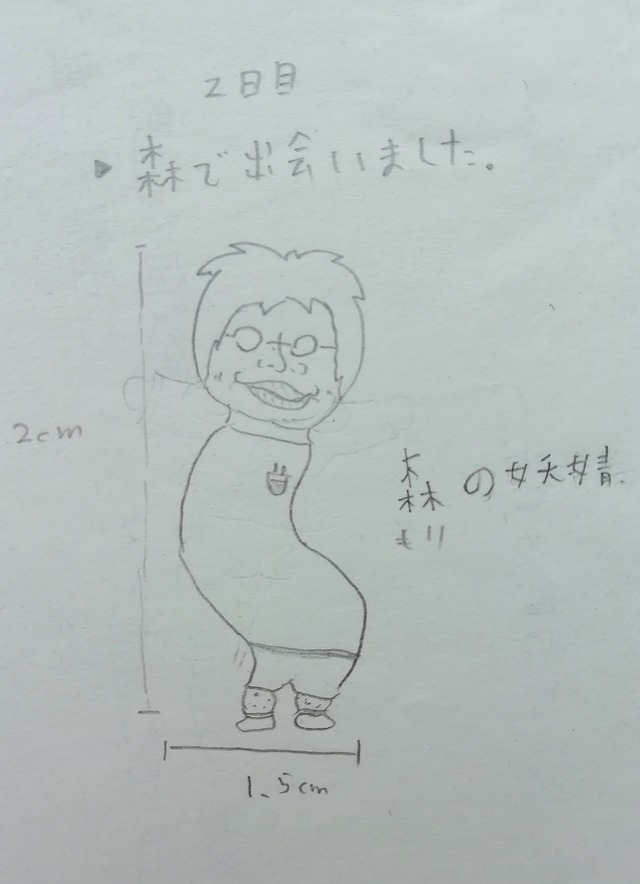 2日目
▶ 森で出会いました。
2cm
森の妖精.
もり
1.5cm